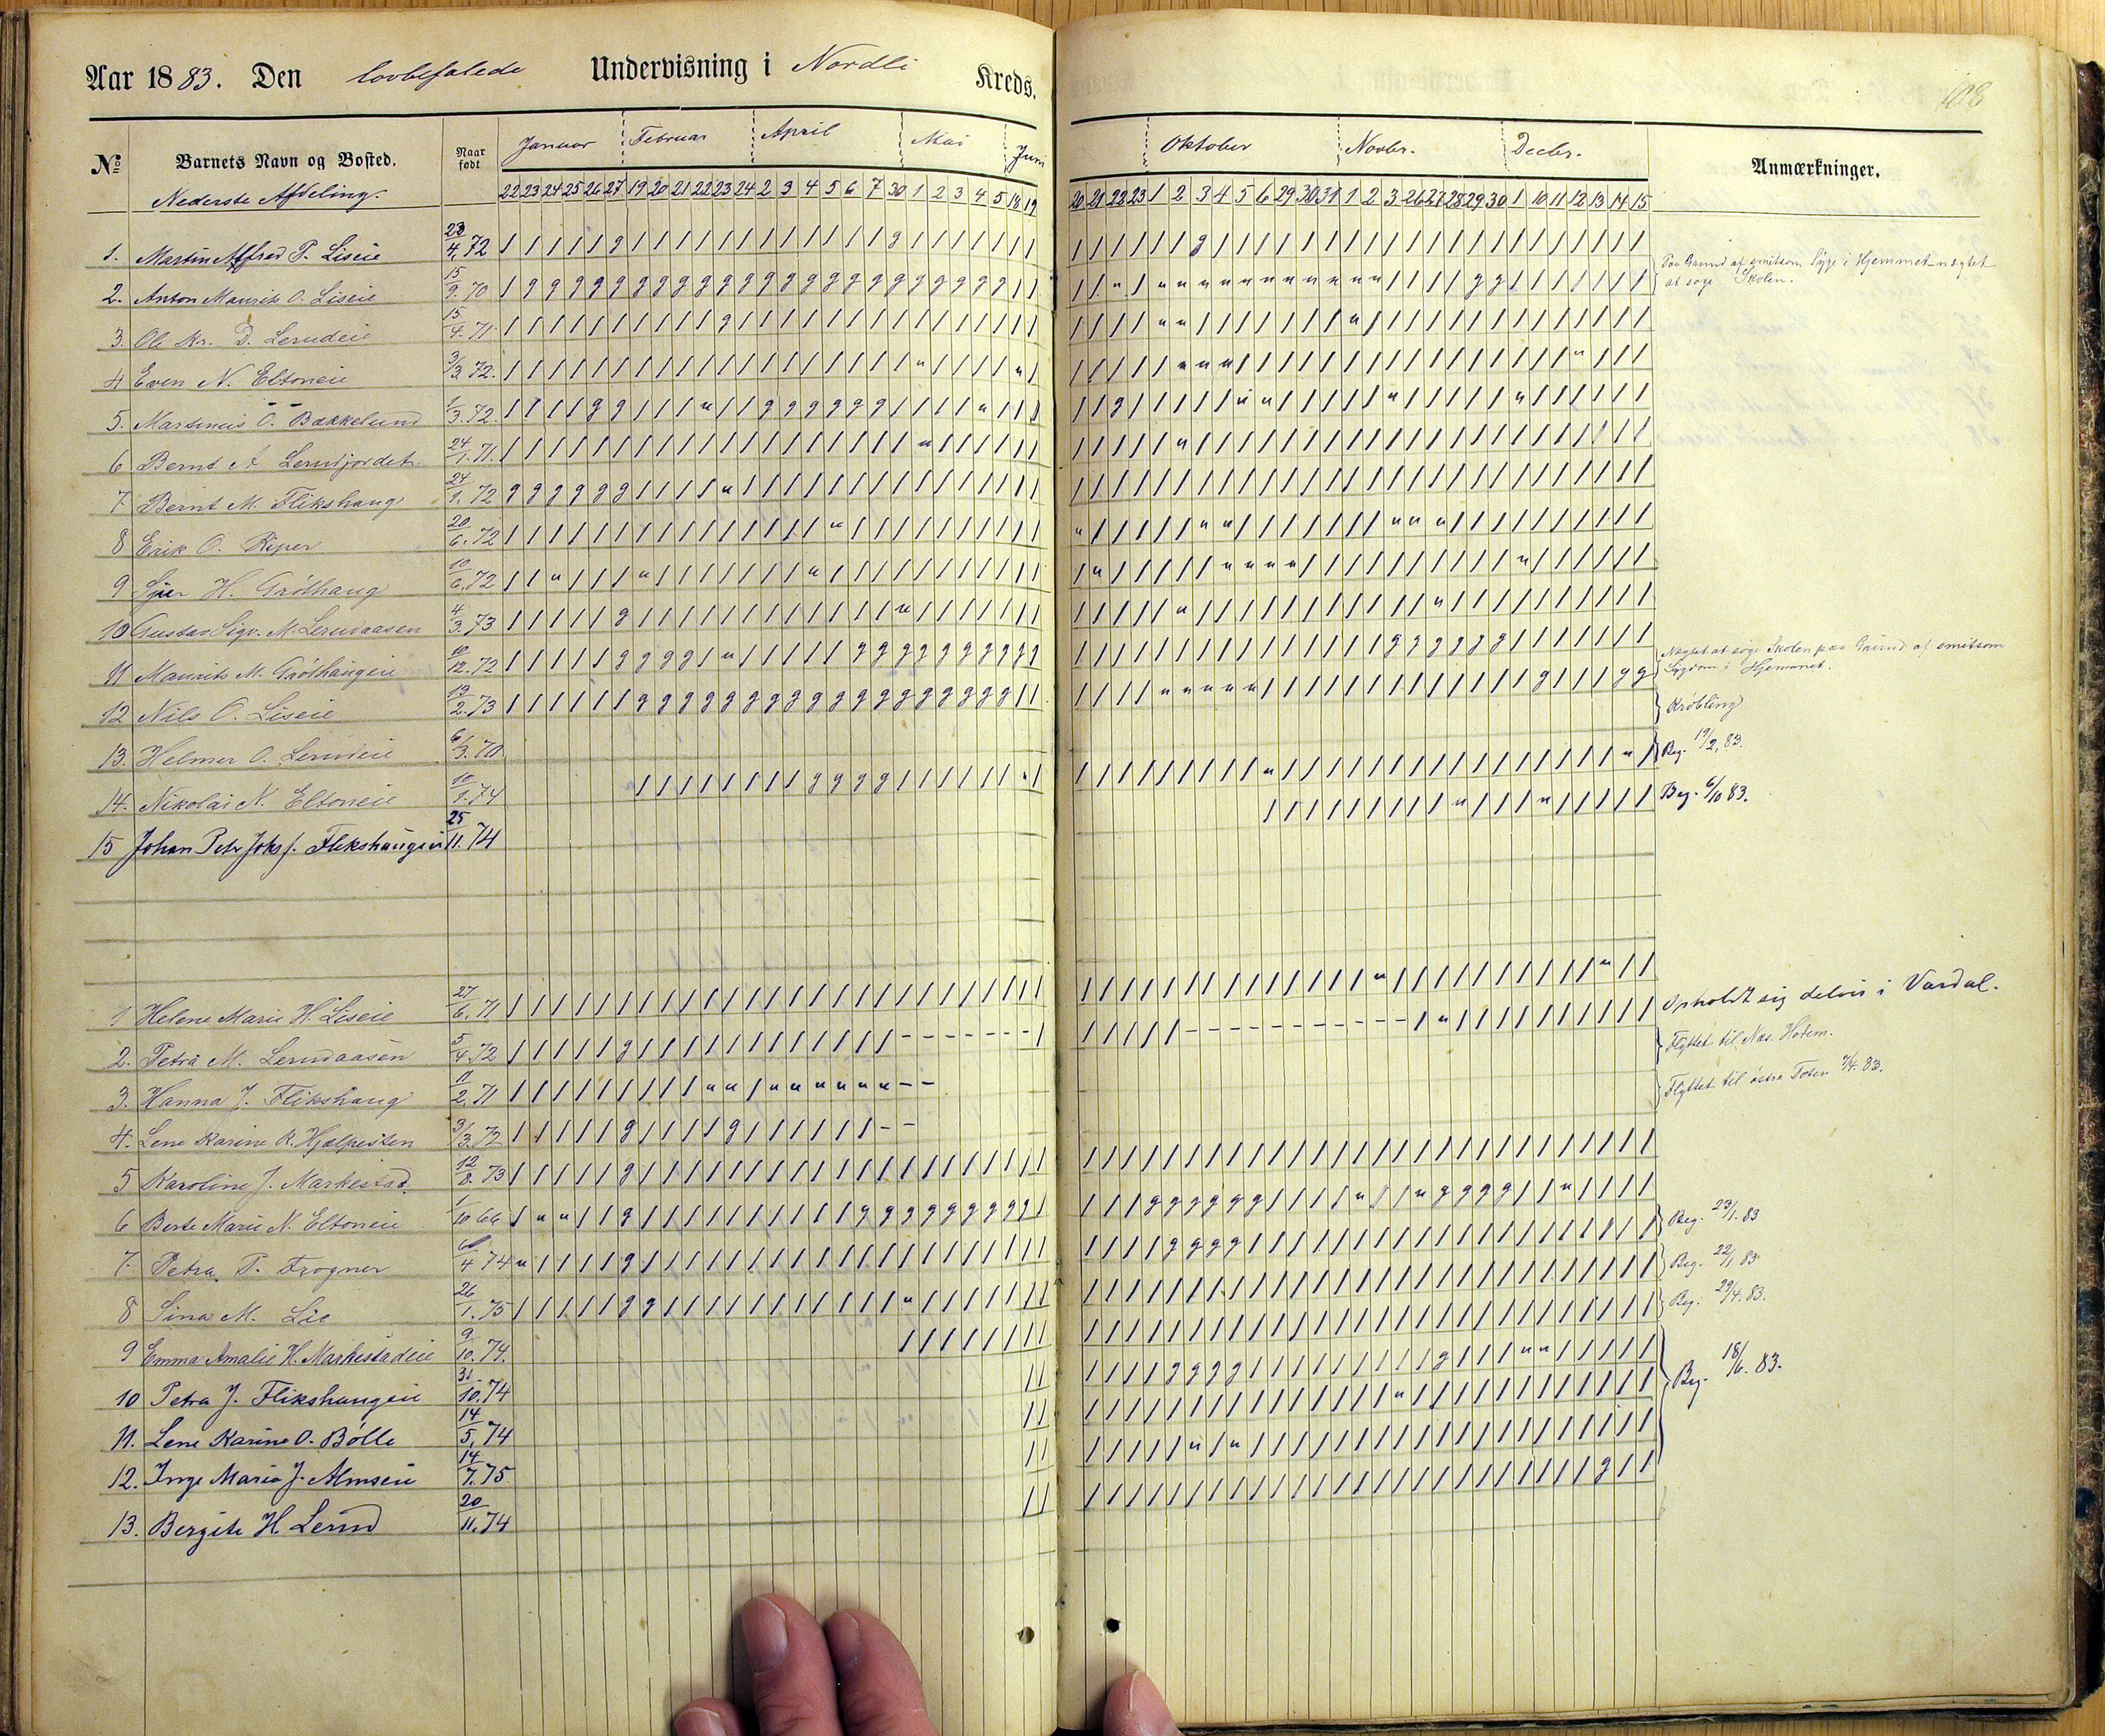 108
Aar 1883. Den lovbefalede Undervisning i Nordli Kreds.
No Barnets Navn og Bosted. Naar født Januar Februar April Mai Juni Oktober Novbr. Decbr. Anmærkninger.
Nederste Afdeling. 22 23 24 25 26 27 19 20 21 22 23 24 2 3 4 5 6 7 30 1 2 3 4 5 18 19 20 21 22 23 1 2 3 4 5 6 29 30 31 1 2 3 26 27 28 29 30 1 10 11 12 13 14 15
1. Martin Alfred P. Liseie 23/4. 72
2. Anton Maurits O. Liseie 15/9. 70 Paa Grund af smitsom Syge i Hjemmet nægtet
at søge Skolen.
3. Ole Kr. D. Lerudeie 15/4. 71.
4 Even N. Eltoneie 3/3. 72.
5. Martinius O. Bakkelund 1/3. 72.
6 Bernt A Lerudjordet. 24/1. 71.
7 Bernt M. Flikshaug 24/9. 72
8 Erik O. Piper 20/6. 72
9 H. Grøthaug 10/6. 72
10 Gustav Sigv. M. Lerudaasen 4/3. 73
11 Maurits M. Grøthaugeie 10/12. 72
12 Nils O. Liseie 13/2. 73 Nægtet at søge Skolen paa Grund af smitsom
Sygdom i Hjemmet.
13. Helmer O. Lerudeie 6/3. 70 Krøbling
14. Nikolai N. Eltoneie 10/1. 74 Beg. 19/2. 83.
15 Johan Petr Johs J. Flikshaugeie 25/11. 74 Beg. 6/10 83.
1 Helene Marie H. Liseie 27/6. 71
2. Petra M. Lerudaasen 5/4. 72 Opholdt sig delvis i Vardal.
3. Hanna J. Flikshaug 11/2. 71 Flyttet til Næs. Hedem.
4. Lene Karine R. Hjælpesten 3/3. 72 Flyttet til østre Toten 7/4. 83.
5 Karoline J. Markestad. 12/8. 73
6 Berte Marie N. Eltoneie 1/10 66
7. Petra P. Frogner 6/4 74 Beg. 23/1. 83
8 Sina M. Lie 26/1. 75 Beg. 22/1 83
9 Emma Amalie H. Markestadeie 9/10. 74. Beg. 29/4. 83.
10 Petra J. Flikshaugeie 31./10. 74
11. Lene Karine O. Bølle 14/5. 74 Beg. 18/6. 83.
12. Inge Maria J. Almseie 14/7. 75
13. Bergite H. Lerud 20/11. 74